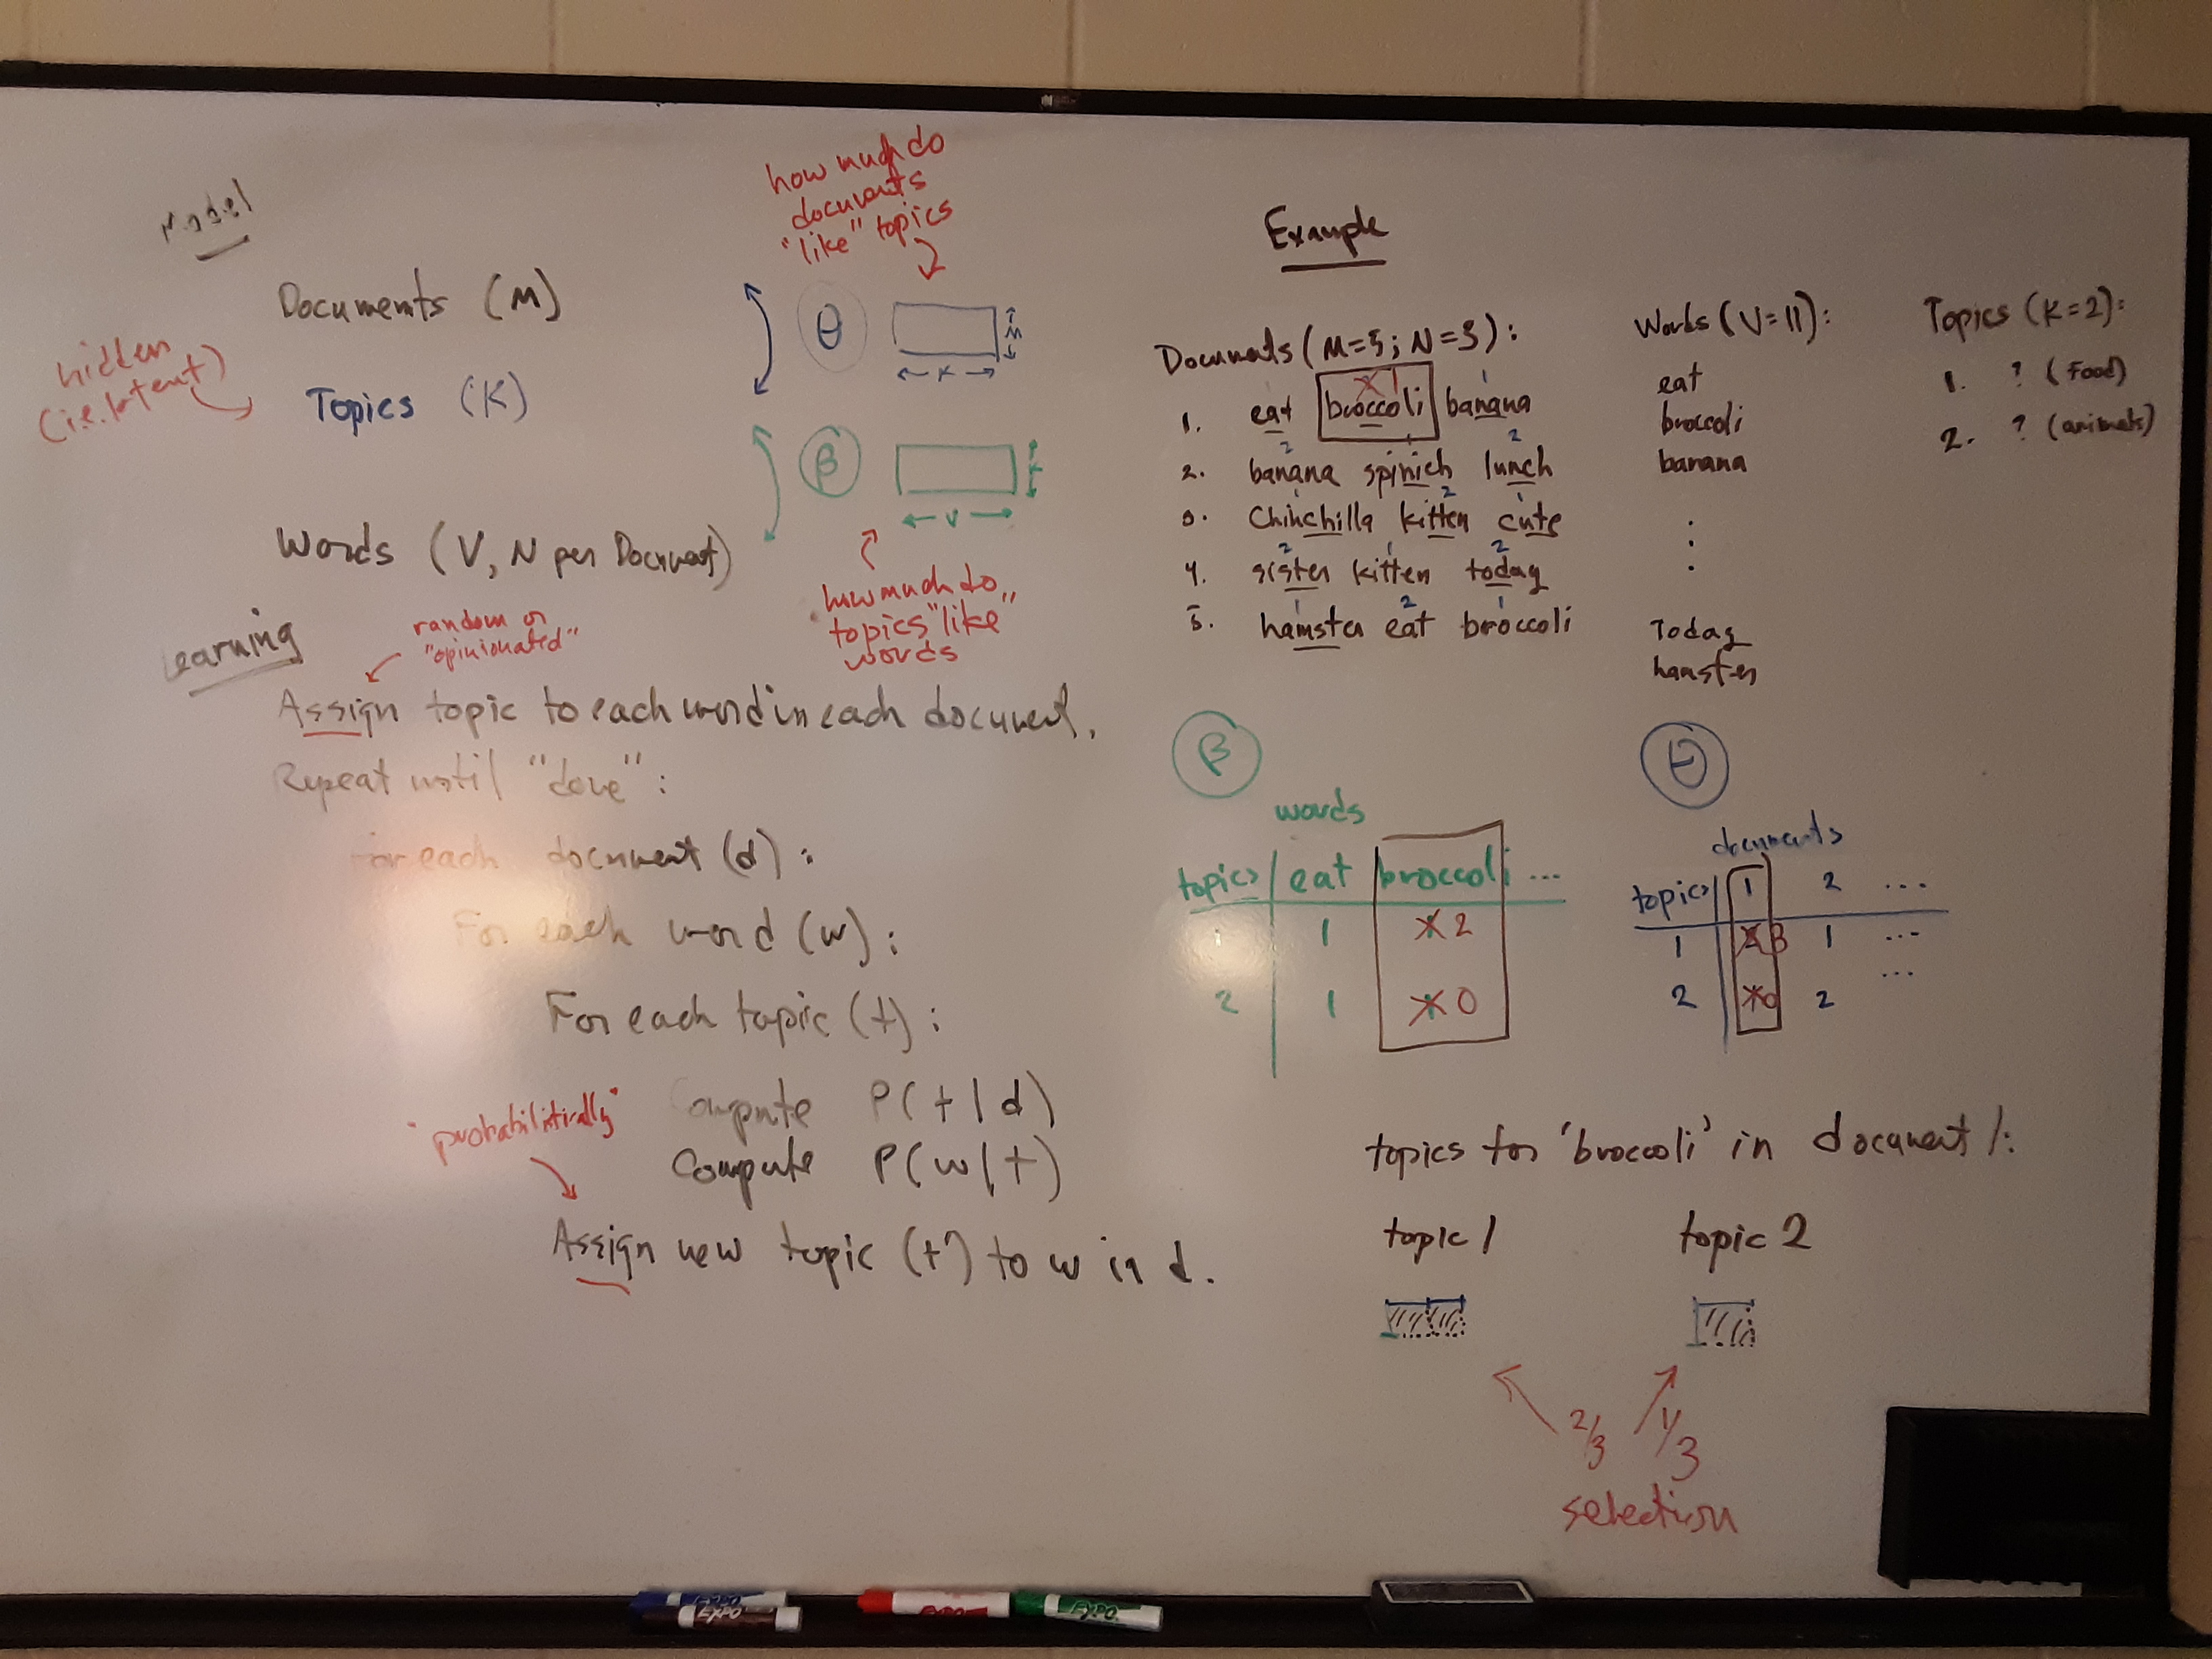 Model
how much do
documents
"like" topics
Documents (M)
θ
M
K
hidden
(i.e. latent)
Topics (K)
β
K
V
Words (V, N per Document)
how much do
topics "like"
words
Learning
random or
"opinionated"
Assign topic to each word in each document.
Repeat until "done":
For each document (d):
For each word (w):
For each topic (t):
Compute P(t|d)
"probabilistically"
Compute P(w|t)
Assign new topic (t') to w in d.
Example
Documents (M=5; N=3):
1 1
1. eat broccoli banana
2 1 2
2. banana spinich lunch
1 2 1
3. Chinchilla kitten cute
2 1 2
4. sister kitten today
1 2 1
5. hamster eat broccoli
Words (V=11):
eat
broccoli
banana
:
Today
hamster
Topics (K=2):
1. ? (Food)
2. ? (animals)
β
words
topics eat broccoli ...
1 1 2
2 1 0
θ
documents
topics 1 2 ...
1 2 3 1 ...
...
2 0 2
topics for 'broccoli' in document 1:
topic 1 topic 2
2/3 1/3
selection
EXPO
EXPO
EXPO
EXPO